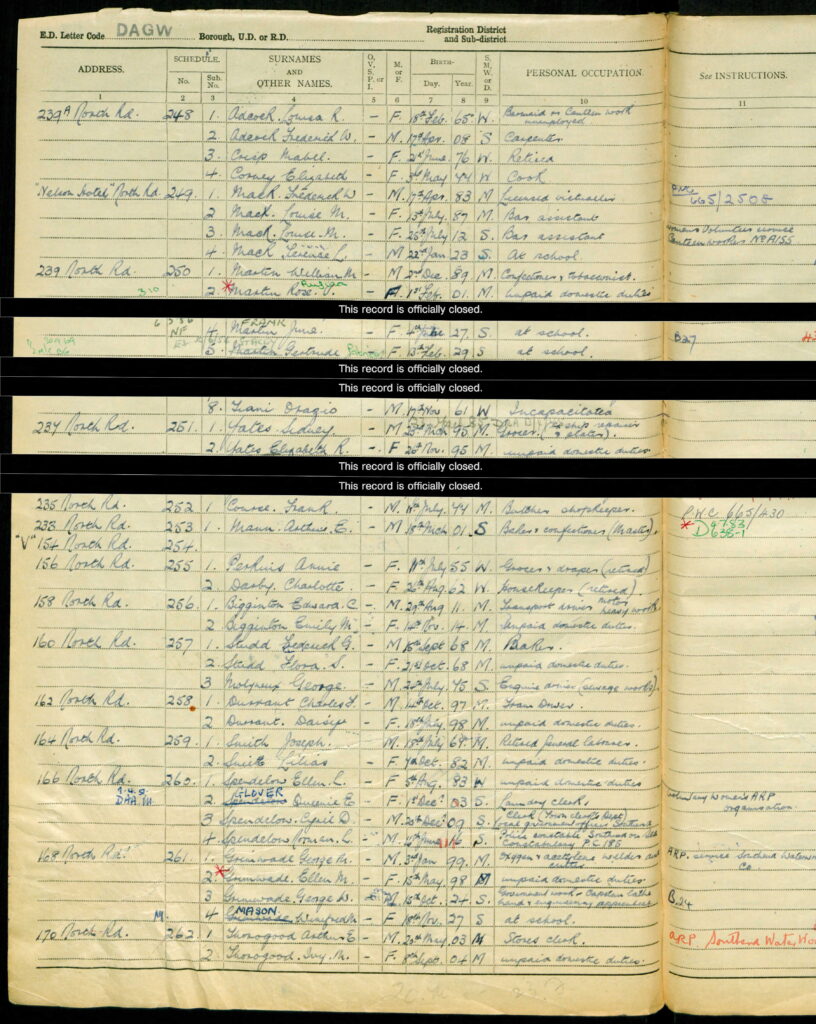 E.D. Letter Code DAGW Borough, U.D. or R.D. Registration District and Sub-district
ADDRESS. SCHEDULE. No. Sub. No. SURNAMES AND OTHER NAMES. O, V, S, P. or I. M. or F. BIRTH- Day. Year. S, M, W or D. PERSONAL OCCUPATION. See INSTRUCTIONS.
1 2 3 4 5 6 7 8 9 10 11
239A North Rd. 248 1. Adcock. Louisa R. - F. 18th Feb. 65 W. Barmaid or Canteen work unemployed
2. Adcock Frederick W. - M. 17th Apr. 08 S Carpenter
3. Crisp Mabel. - F. June 76 W. Retired
4. Elizabeth - F. 3rd May 44 W Cook
"Nelson Hotel" North Rd. 249. 1. Mack. Frederick W - M. 17th Apr. 83 M Licensed victualler 665/2508
2 Mack. Louise M. - F. 13th July. 87 M. Bar assistant
3. Mack. Louise. M. - F. 25th July 12 S. Bar assistant Womens Volunteer Canteen worker No A155
4. Mack Terence L. - M 22nd Jan 23 S. At school.
239 North Rd. 250 1. Martin William M - M 2nd Dec. 89. M. Confectioner & tobacconist.
310 2. Martin Rose. J. - F. 1st Feb. 01. M. unpaid domestic duties
This record is officially closed.
NF FRANK
4. Martin June. - F. 4th 27. S. at school. B27
5. Martin Gertrude - F. 13th Feb. 29. S at school.
This record is officially closed.
This record is officially closed.
8. Orazio - M. 17th Nov 61 W Incapacitated
237 North Rd. 251. 1. Yates Sidney - M 23rd Mch 95. M. Grocer.
2. Yates Elizabeth R. - F 26th Nov. 95 M. unpaid domestic duties
This record is officially closed.
This record is officially closed.
235 North Rd. 252 1 Frank - M. July. 44 M. Butcher shopkeeper. P.W.C 665/430
233 North Rd. 253 1. Mann. Arthur. E. - M 18th Mch 01. S Baker & confectioner (Master). D 9783 D 635-1
"V" 154 North Rd. 254.
156 North Rd. 255 1. Perkins Annie - F. July 55 W Grocer & draper (retired)
2. Darby. Charlotte. - F. 26th Aug. 62 W Housekeeper (retired).
158 North Rd. 256 1. Bigginton Edward. C - M. 29th Aug 11. M. Transport driver motor heavy work
2. Bigginton Emily M. - F. 14th Nov. 14 M. unpaid domestic duties.
160 North Rd. 257 1. Studd Frederick G. - M 18th Sept 68 M. Baker.
2. Studd Flora. S. - F. 21st Oct. 68 M. unpaid domestic duties.
3 Molyneux George. - M 22nd July. 75 S. Engine driver (sewage works).
162 North Rd. 258. 1. Durrant Charles F. - M. 14th Oct. 97 M. Tram Driver.
2. Durrant. Daisy. - F. 18th July 98 M. unpaid domestic duties.
164 North Rd. 259. 1. Smith Joseph. - M. 18th July 69 M. Retired general labourer.
2. Smith Lilias - F. Oct. 82 M. unpaid domestic duties.
166 North Rd. 260. 1. Spendelow Ellen. L. - F. 5th Aug. 83 W unpaid domestic duties
DAA GLOVER
2. Spendelow Queenie E - F. 1st Dec. 03 S. Laundry clerk. Voluntary Women's ARP organisation.
3 Spendelow. Cyril D. - M. Dec. 07 S. Clerk (Town clerk's Dept) local government officer Southend
4. Spendelow Norman. L. - M. June 16 S. Police constable Southend on Sea Constabulary P.C. 186
168 North Rd. 261 1. Grimwade George W. - M. 3rd Jan 99. M. Oxygen & acetylene welder and cutter ARP. service Southend Waterworks Co
2. Grimwade. Ellen M. - F. 15th May. 98 M unpaid domestic duties.
3 Grimwade. George W. - M. 15th Oct. 24 S. Government work Capstan lathe hand & engineering apprentice B.24
M. MASON
4 Grimwade Winifred M - F. 18th Nov. 27 S at school.
170 North Rd. 262 1. Thorogood Arthur E - M. 20th May. 03 M Stores clerk. ARP Southend Water Wo
2. Thorogood. Ivy. M. - F. 8th Sept. 04 M. unpaid domestic duties.